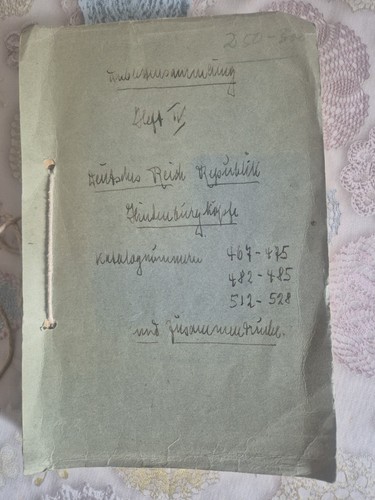 Heft IV
Deutsches Reich Republik
Hindenburgköpfe
Katalognummern 467-475
482-485
512-528
und Zusammendrucke.